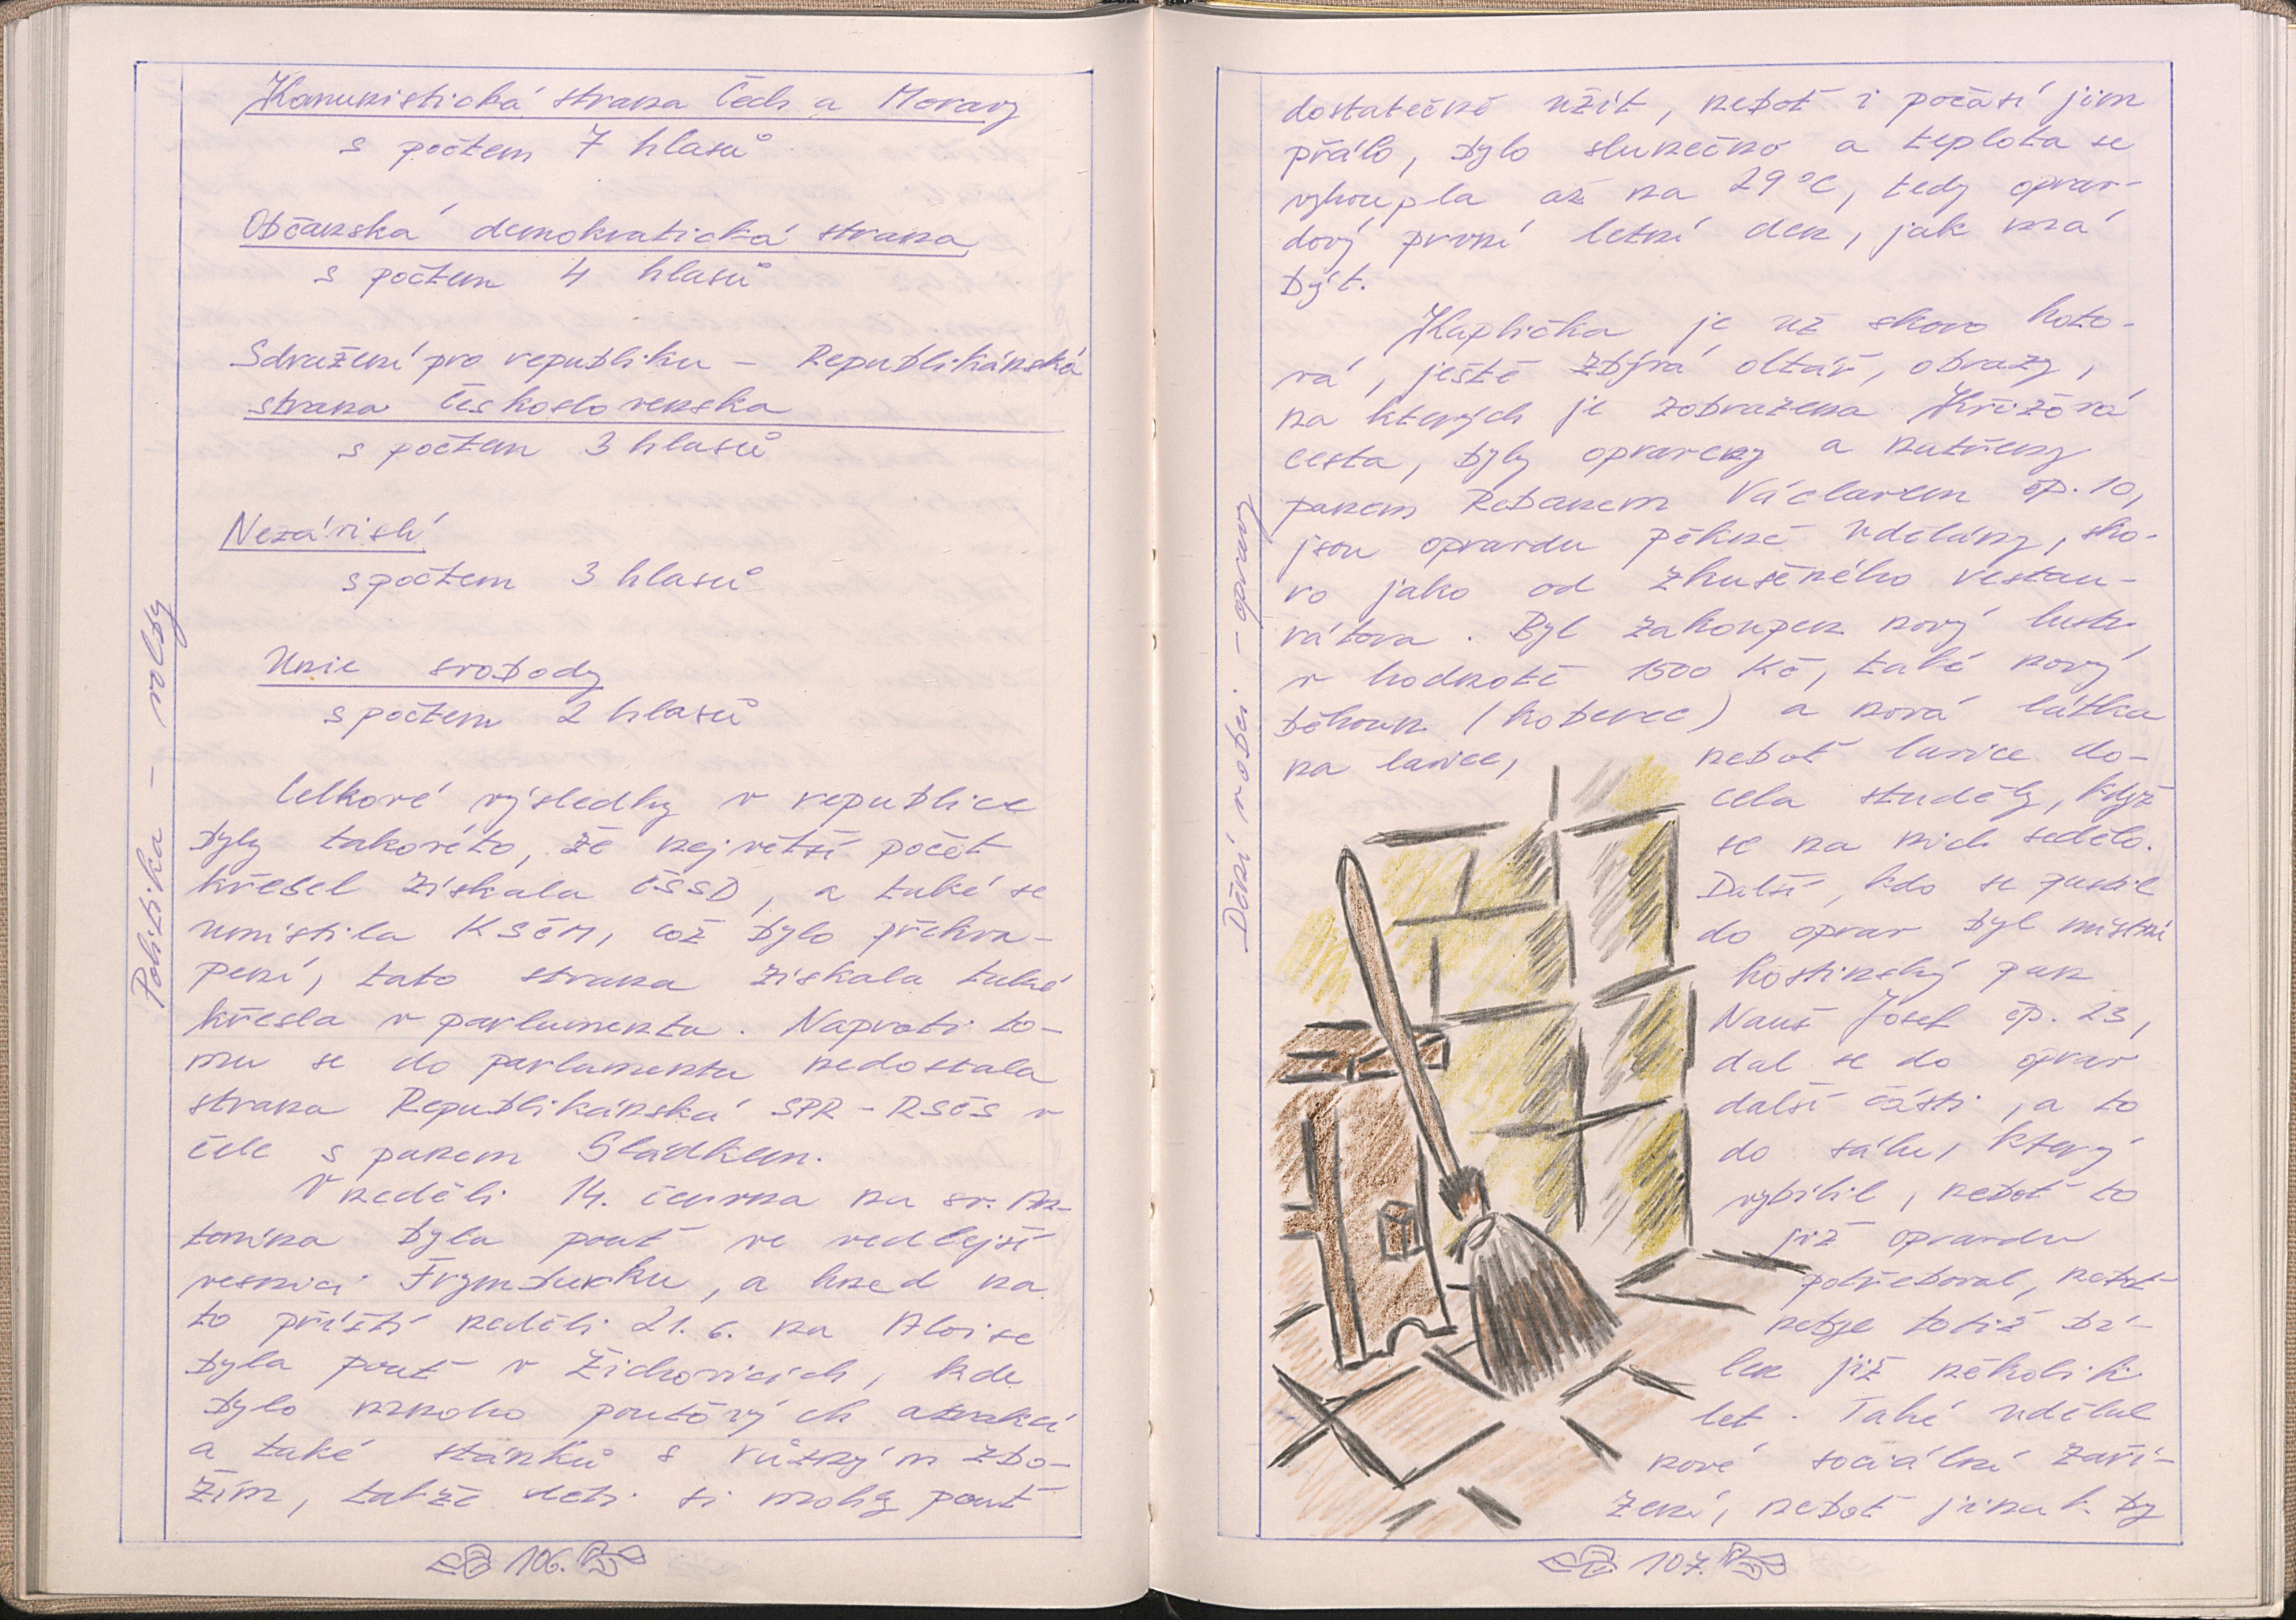 Komunistická strana Čech a Moravy
s počtem 7 hlasů
Občanská demokratická strana
s počtem 4 hlasů
Sdružení pro republiku – Republikánská
strana Československa
s počtem 3 hlasů
Nezávislí
s počtem 3 hlasů
Unie svobody
s počtem 2 hlasů
Politika – volby
Celkové výsledky v republice
byly takovéto, že největší počet
křesel získala ČSSD, a také se
umístila KSČM, což bylo překva-
pení, tato strana získala také
křesla v parlamentu. Naproti to-
mu se do parlamentu nedostala
strana Republikánská SPR-RSČS v
čele s panem Sládkem.
V neděli 14. června na sv. An-
tonína byla pouť ve vedlejší
vesnici Frymburku, a hned na
to příští neděli 21. 6. na Aloise
byla pouť v Žichovicích, kde
bylo mnoho pouťových atrakcí
a také stánků s různým zbo-
žím, takže děti si mohly pouť
106.
dostatečně užít, neboť i počasí jim
přálo, bylo slunečno a teplota se
vyhoupla až na 29°C, tedy oprav-
dový první letní den, jak má
být.
Kaplička je už skoro hoto-
vá, ještě zbývá oltář, obrazy,
na kterých je zobrazena Křížová
cesta, byly opraveny a natřeny
panem Rebanem Václavem čp. 10,
jsou opravdu pěkně udělány, sko-
ro jako od zkušeného restau-
rátora. Byl zakoupen nový lustr
v hodnotě 1500 Kč, také nový
běhoun (koberec) a nová látka
na lavice, neboť lavice do-
cela studěly, když
se na nich sedělo.
Další, kdo se pustil
do oprav byl místní
hostinský pan
Nauš Josef čp. 23,
dal se do oprav
další části, a to
do sálu, který
vybílil, neboť to
již opravdu
potřeboval, neboť
nebyl totiž bí-
len již několik
let. Také udělal
nové sociální zaří-
zení, neboť jinak by
Dění v obci – opravy
107.